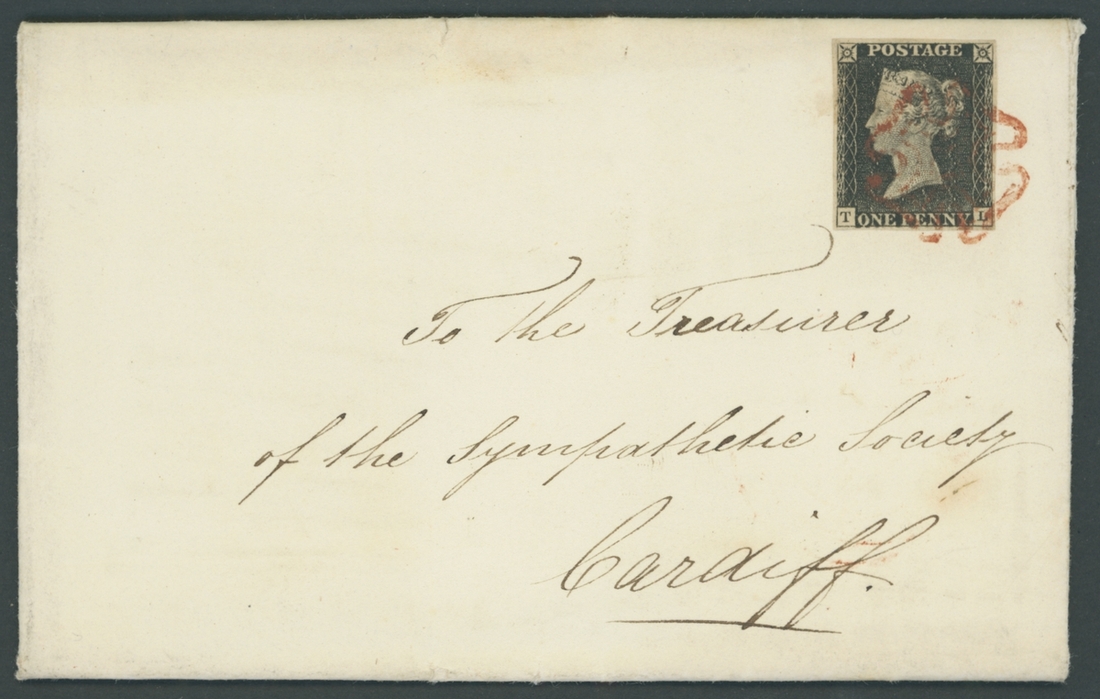 POSTAGE
T ONE PENNY L
To the Treasurer
of the Sympathetic Society
Cardiff.